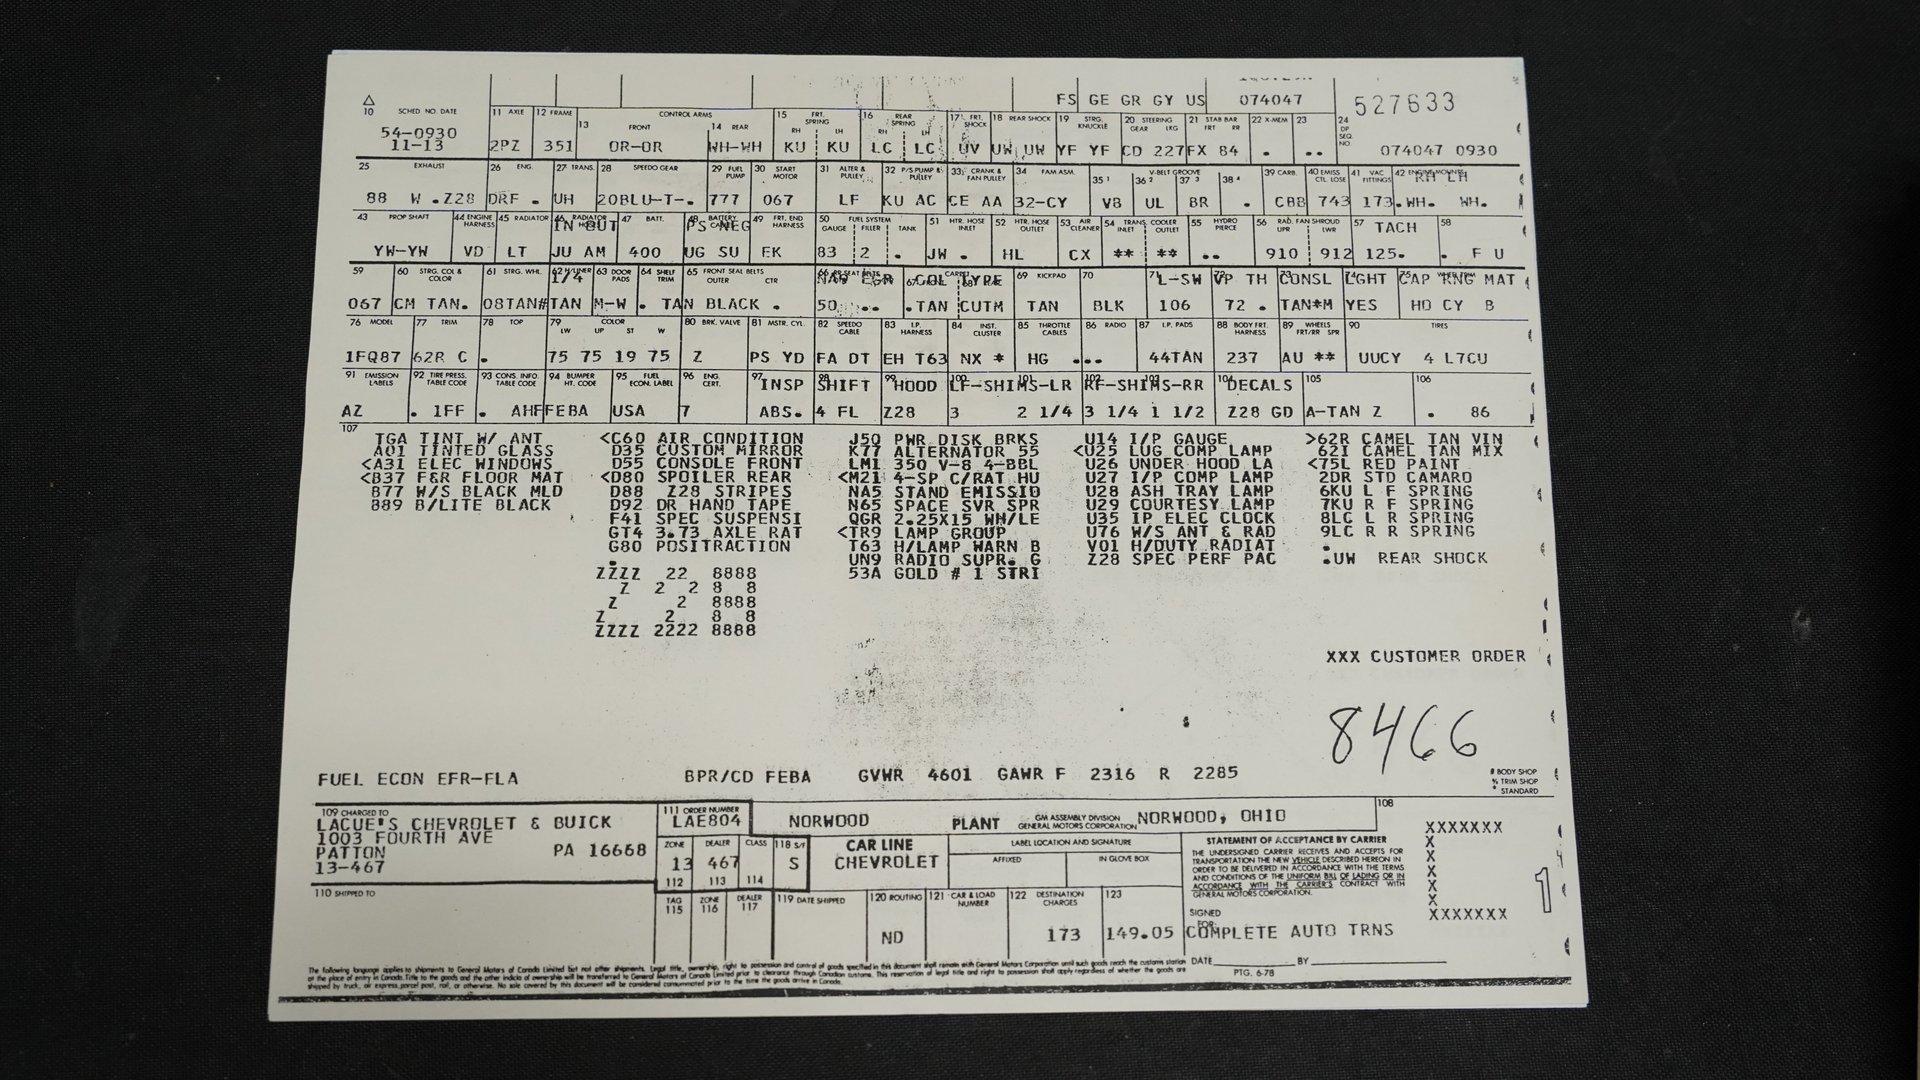 FS GE GR GY US 074047 527633
10 SCHED NO. DATE 11 AXLE 12 FRAME CONTROL ARMS 13 FRONT 14 REAR 15 FRT. SPRING RH LH 16 REAR SPRING RH LH 17 FRT. SHOCK 18 REAR SHOCK 19 STRG. KNUCKLE 20 STEERING GEAR LKG 21 STAB BAR FRT RR 22 X-MEM 23 24 DP SEQ. NO.
54-0930
11-13 2PZ 351 OR-OR WH-WH KU KU LC LC UV UW UW YF YF CD 227 FX 84 . .. 074047 0930
25 EXHAUST 26 ENG. 27 TRANS. 28 SPEEDO GEAR 29 FUEL PUMP 30 START MOTOR 31 ALTER & PULLEY 32 P/S PUMP & PULLEY 33 CRANK & FAN PULLEY 34 FAN ASM. V-BELT GROOVE 35 1 36 2 37 3 38 4 39 CARB. 40 EMISS CTL. LOSE 41 VAC FITTINGS 42 ENGINE MOUNTS RH LH
88 W .Z28 DRF . UH 20BLU-T-. 777 067 LF KU AC CE AA 32-CY V8 UL BR . CBB 743 173. WH. WH.
43 PROP SHAFT 44 ENGINE HARNESS 45 RADIATOR 46 RADIATOR HOSE IN OUT 47 BATT. 48 BATTERY CABLE PS NEG 49 FRT. END HARNESS 50 FUEL SYSTEM GAUGE FILLER TANK 51 HTR. HOSE INLET 52 HTR. HOSE OUTLET 53 AIR CLEANER 54 TRANS. COOLER INLET OUTLET 55 HYDRO PIERCE 56 RAD. FAN SHROUD UPR LWR 57 TACH 58
YW-YW VD LT JU AM 400 UG SU EK 83 2 . JW . HL CX ** ** .. 910 912 125. . F U
59 60 STRG. COL & COLOR 61 STRG. WHL. 62 H/LINER 1/4 63 DOOR PADS 64 SHELF TRIM 65 FRONT SEAT BELTS OUTER CTR 66 RR SEAT BELTS 67 COL CARPET 68 TYPE 69 KICKPAD 70 71 L-SW 72 VP TH 73 CONSL 74 LGHT 75 CAP RNG MAT
067 CM TAN. 08TAN# TAN M-W . TAN BLACK . 50 .. .TAN CUTM TAN BLK 106 72 . TAN*M YES HO CY B
76 MODEL 77 TRIM 78 TOP 79 COLOR LW UP ST W 80 BRK. VALVE 81 MSTR. CYL. 82 SPEEDO CABLE 83 I.P. HARNESS 84 INST. CLUSTER 85 THROTTLE CABLES 86 RADIO 87 I.P. PADS 88 BODY FRT. HARNESS 89 WHEELS FRT/RR SPR 90 TIRES
1FQ87 62R C . 75 75 19 75 Z PS YD FA DT EH T63 NX * HG ... 44TAN 237 AU ** UUCY 4 L7CU
91 EMISSION LABELS 92 TIRE PRESS. TABLE CODE 93 CONS. INFO. TABLE CODE 94 BUMPER HT. CODE 95 FUEL ECON. LABEL 96 ENG. CERT. 97 INSP 98 SHIFT 99 HOOD 100 LF-SHIMS-LR 101 102 RF-SHIMS-RR 103 104 DECALS 105 106
AZ . 1FF . AHF FEBA USA 7 ABS. 4 FL Z28 3 2 1/4 3 1/4 1 1/2 Z28 GD A-TAN Z . 86
107
TGA TINT W/ ANT <C60 AIR CONDITION J50 PWR DISK BRKS U14 I/P GAUGE >62R CAMEL TAN VIN
A01 TINTED GLASS D35 CUSTOM MIRROR K77 ALTERNATOR 55 <U25 LUG COMP LAMP 62I CAMEL TAN MIX
<A31 ELEC WINDOWS D55 CONSOLE FRONT LM1 350 V-8 4-BBL U26 UNDER HOOD LA <75L RED PAINT
<B37 F&R FLOOR MAT <D80 SPOILER REAR <M21 4-SP C/RAT HU U27 I/P COMP LAMP 2DR STD CAMARO
B77 W/S BLACK MLD D88 Z28 STRIPES NA5 STAND EMISSIO U28 ASH TRAY LAMP 6KU L F SPRING
B89 B/LITE BLACK D92 DR HAND TAPE N65 SPACE SVR SPR U29 COURTESY LAMP 7KU R F SPRING
F41 SPEC SUSPENSI QGR 2.25X15 WH/LE U35 IP ELEC CLOCK 8LC L R SPRING
GT4 3.73 AXLE RAT <TR9 LAMP GROUP U76 W/S ANT & RAD 9LC R R SPRING
G80 POSITRACTION T63 H/LAMP WARN B V01 H/DUTY RADIAT .
. UN9 RADIO SUPR. G Z28 SPEC PERF PAC .UW REAR SHOCK
ZZZZ 22 8888 53A GOLD # 1 STRI
Z 2 2 8 8
Z 2 8888
Z 2 8 8
ZZZZ 2222 8888
XXX CUSTOMER ORDER
8466
FUEL ECON EFR-FLA BPR/CD FEBA GVWR 4601 GAWR F 2316 R 2285
# BODY SHOP
% TRIM SHOP
* STANDARD
109 CHARGED TO
LACUE'S CHEVROLET & BUICK
1003 FOURTH AVE
PATTON PA 16668
13-467
110 SHIPPED TO
111 ORDER NUMBER
LAE804
NORWOOD PLANT GM ASSEMBLY DIVISION GENERAL MOTORS CORPORATION NORWOOD, OHIO 108
ZONE DEALER CLASS 118 S/F
13 467 S
112 113 114
CAR LINE
CHEVROLET
LABEL LOCATION AND SIGNATURE
AFFIXED IN GLOVE BOX
STATEMENT OF ACCEPTANCE BY CARRIER
THE UNDERSIGNED CARRIER RECEIVES AND ACCEPTS FOR
TRANSPORTATION THE NEW VEHICLE DESCRIBED HEREON IN
ORDER TO BE DELIVERED IN ACCORDANCE WITH THE TERMS
AND CONDITIONS OF THE UNIFORM BILL OF LADING OR IN
ACCORDANCE WITH THE CARRIER'S CONTRACT WITH
GENERAL MOTORS CORPORATION.
XXXXXXX
X
X
X
X
X
XXXXXXX
1
TAG 115 ZONE 116 DEALER 117 119 DATE SHIPPED 120 ROUTING 121 CAR & LOAD NUMBER 122 DESTINATION CHARGES 123
ND 173 149.05
SIGNED
FOR:
COMPLETE AUTO TRNS
DATE BY
PTG. 6-78
The following language applies to shipments to General Motors of Canada Limited but not other shipments. Legal title, ownership, right to possession and control of goods specified in this document shall remain with General Motors Corporation until such goods reach the customs station
at the place of entry in Canada. Title to the goods and the other indicia of ownership will be transferred to General Motors of Canada Limited prior to clearance through Canadian customs. This reservation of legal title and right to possession shall apply regardless of whether the goods are
shipped by truck, air express, parcel post, rail, or otherwise. No sale covered by this document will be considered consummated prior to the time the goods arrive in Canada.